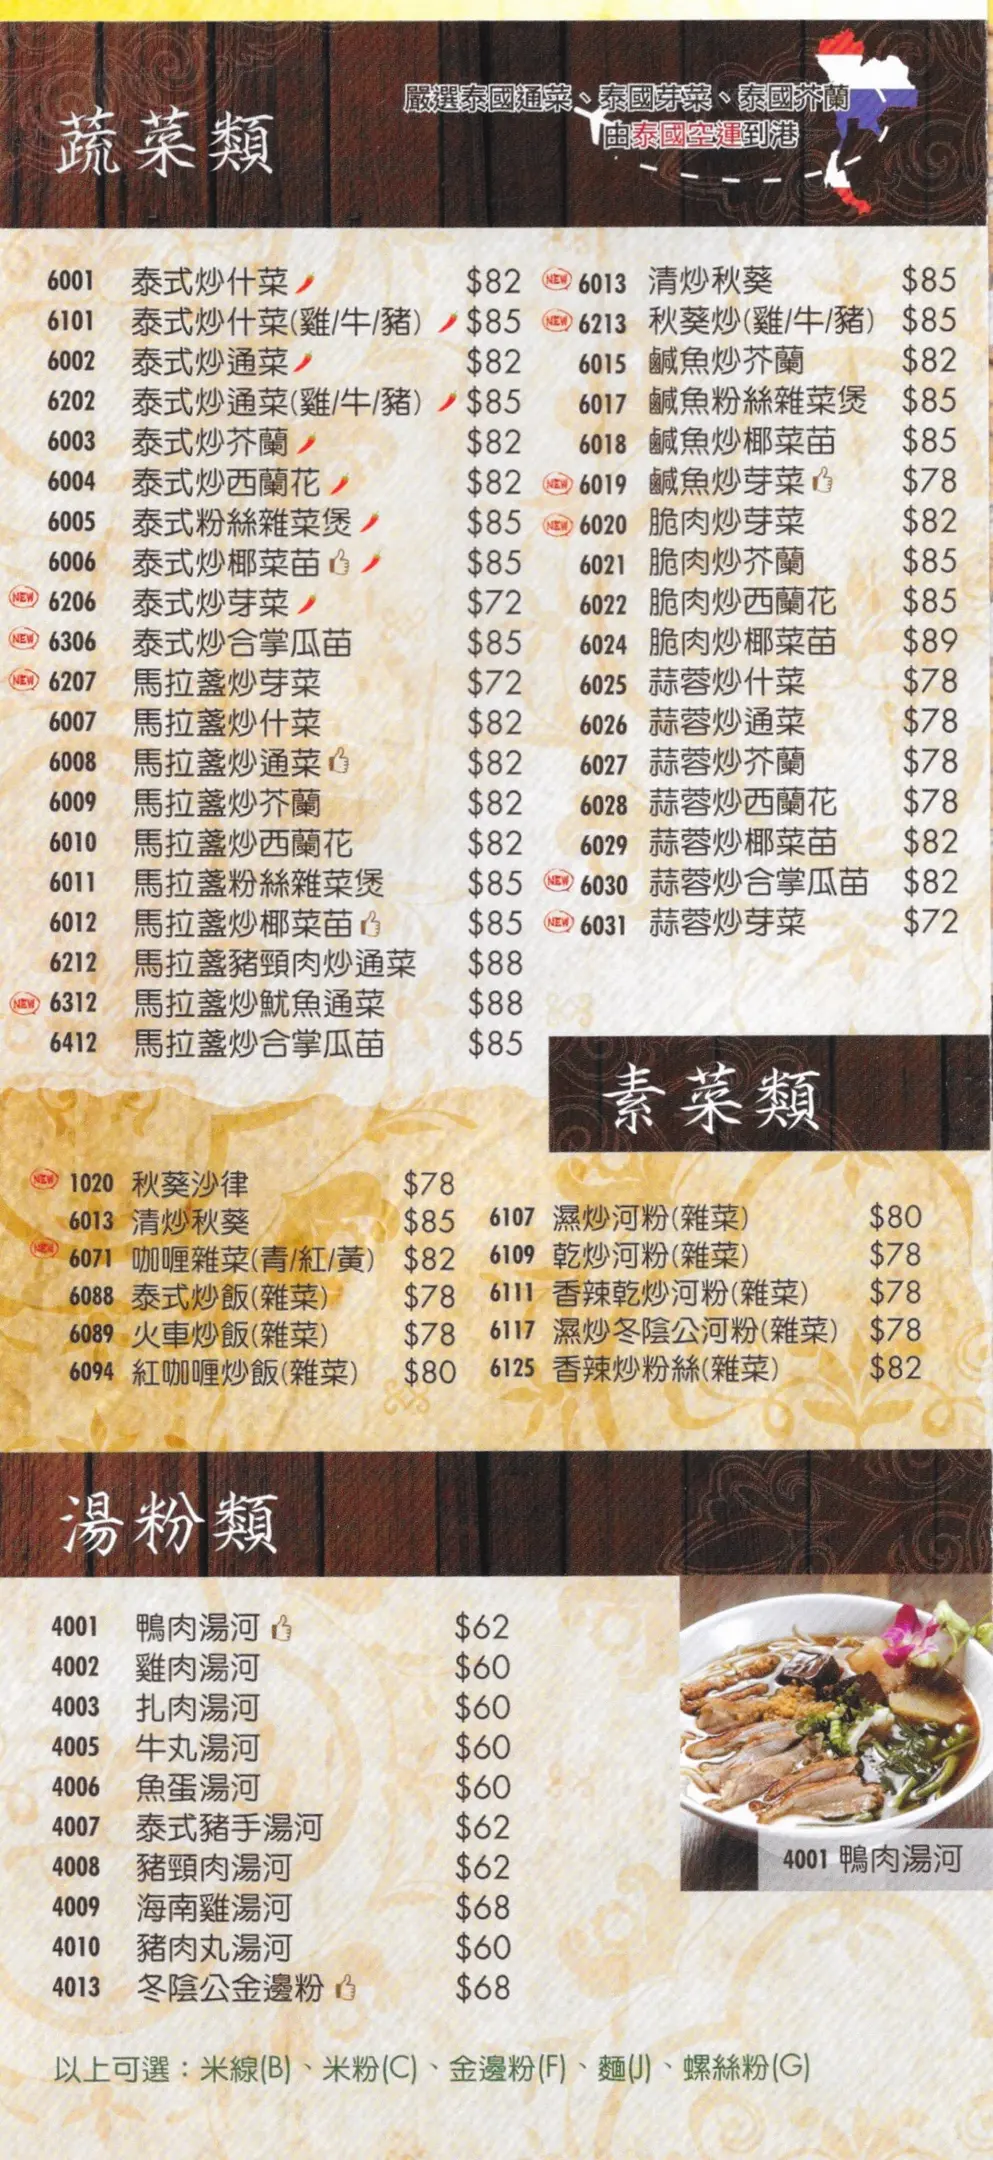 蔬菜類
嚴選泰國通菜、泰國芽菜、泰國芥蘭
由泰國空運到港
6001 泰式炒什菜 $82
6101 泰式炒什菜(雞/牛/豬) $85
6002 泰式炒通菜 $82
6202 泰式炒通菜(雞/牛/豬) $85
6003 泰式炒芥蘭 $82
6004 泰式炒西蘭花 $82
6005 泰式粉絲雜菜煲 $85
6006 泰式炒椰菜苗 $85
NEW 6206 泰式炒芽菜 $72
NEW 6306 泰式炒合掌瓜苗 $85
NEW 6207 馬拉盞炒芽菜 $72
6007 馬拉盞炒什菜 $82
6008 馬拉盞炒通菜 $82
6009 馬拉盞炒芥蘭 $82
6010 馬拉盞炒西蘭花 $82
6011 馬拉盞粉絲雜菜煲 $85
6012 馬拉盞炒椰菜苗 $85
6212 馬拉盞豬頸肉炒通菜 $88
NEW 6312 馬拉盞炒魷魚通菜 $88
6412 馬拉盞炒合掌瓜苗 $85
NEW 6013 清炒秋葵 $85
NEW 6213 秋葵炒(雞/牛/豬) $85
6015 鹹魚炒芥蘭 $82
6017 鹹魚粉絲雜菜煲 $85
6018 鹹魚炒椰菜苗 $85
NEW 6019 鹹魚炒芽菜 $78
NEW 6020 脆肉炒芽菜 $82
6021 脆肉炒芥蘭 $85
6022 脆肉炒西蘭花 $85
6024 脆肉炒椰菜苗 $89
6025 蒜蓉炒什菜 $78
6026 蒜蓉炒通菜 $78
6027 蒜蓉炒芥蘭 $78
6028 蒜蓉炒西蘭花 $78
6029 蒜蓉炒椰菜苗 $82
NEW 6030 蒜蓉炒合掌瓜苗 $82
NEW 6031 蒜蓉炒芽菜 $72
素菜類
NEW 1020 秋葵沙律 $78
6013 清炒秋葵 $85
NEW 6071 咖喱雜菜(青/紅/黃) $82
6088 泰式炒飯(雜菜) $78
6089 火車炒飯(雜菜) $78
6094 紅咖喱炒飯(雜菜) $80
6107 濕炒河粉(雜菜) $80
6109 乾炒河粉(雜菜) $78
6111 香辣乾炒河粉(雜菜) $78
6117 濕炒冬陰公河粉(雜菜) $78
6125 香辣炒粉絲(雜菜) $82
湯粉類
4001 鴨肉湯河 $62
4002 雞肉湯河 $60
4003 扎肉湯河 $60
4005 牛丸湯河 $60
4006 魚蛋湯河 $60
4007 泰式豬手湯河 $62
4008 豬頸肉湯河 $62
4009 海南雞湯河 $68
4010 豬肉丸湯河 $60
4013 冬陰公金邊粉 $68
4001 鴨肉湯河
以上可選：米線(B)、米粉(C)、金邊粉(F)、麵(J)、螺絲粉(G)